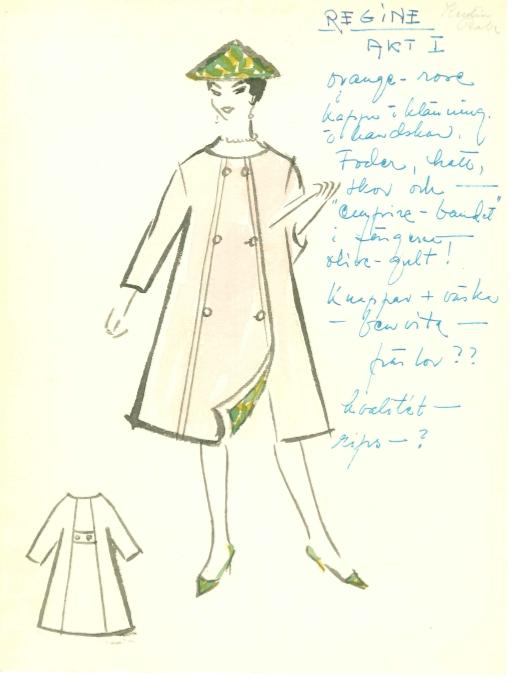 REGINE
AKT I
orange-rose
kappa i klänning.
o handskar.
Foder, hatt,
skor och —
"empire-bandet"
i färgerna —
olive-gult!
Knappar + väska
— benvita —
pärlor??
kvalitét —
rips — ?